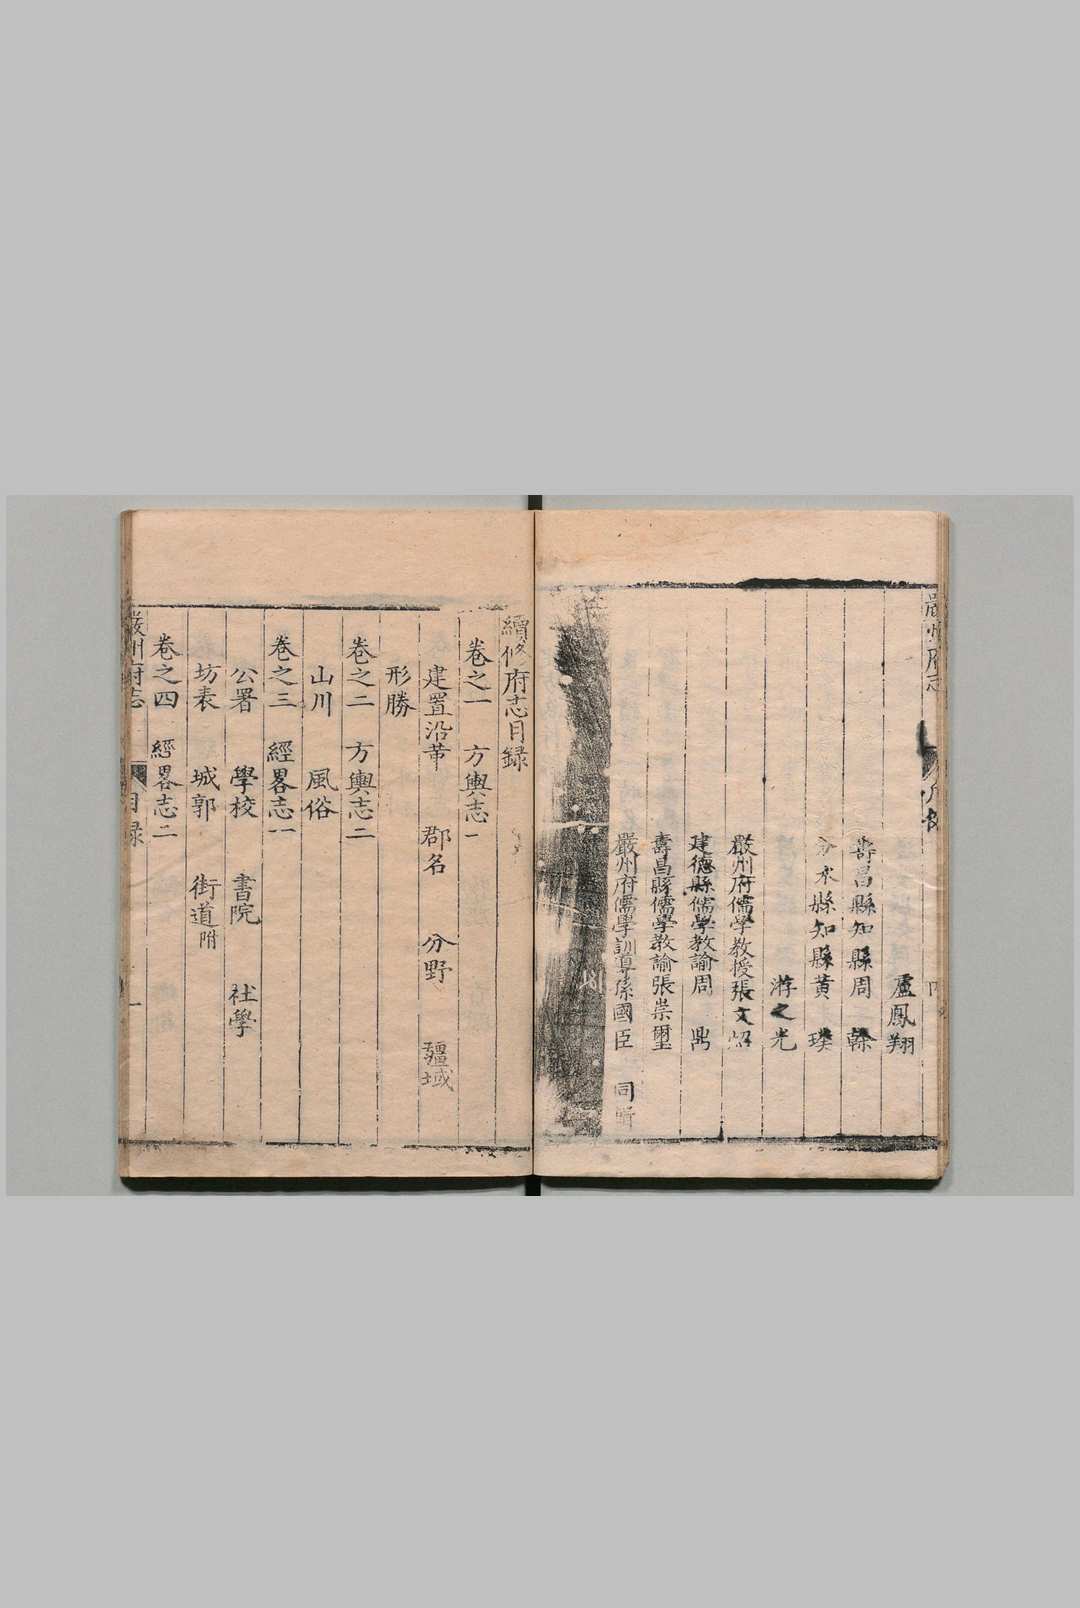 嚴州府志
盧鳳翔
壽昌縣知縣周
分水縣知縣黃 璞
游之光
嚴州府儒學教授張文
建德縣儒學教諭周 鼎
壽昌縣儒學教諭張崇璽
嚴州府儒學訓導孫國臣 同
續修府志目録
卷之一 方輿志一
建置沿革 郡名 分野 疆域
形勝
卷之二 方輿志二
山川 風俗
卷之三 經畧志一
公署 學校 書院 社學
坊表 城郭 街道附
卷之四 經畧志二
嚴州府志 目録 一